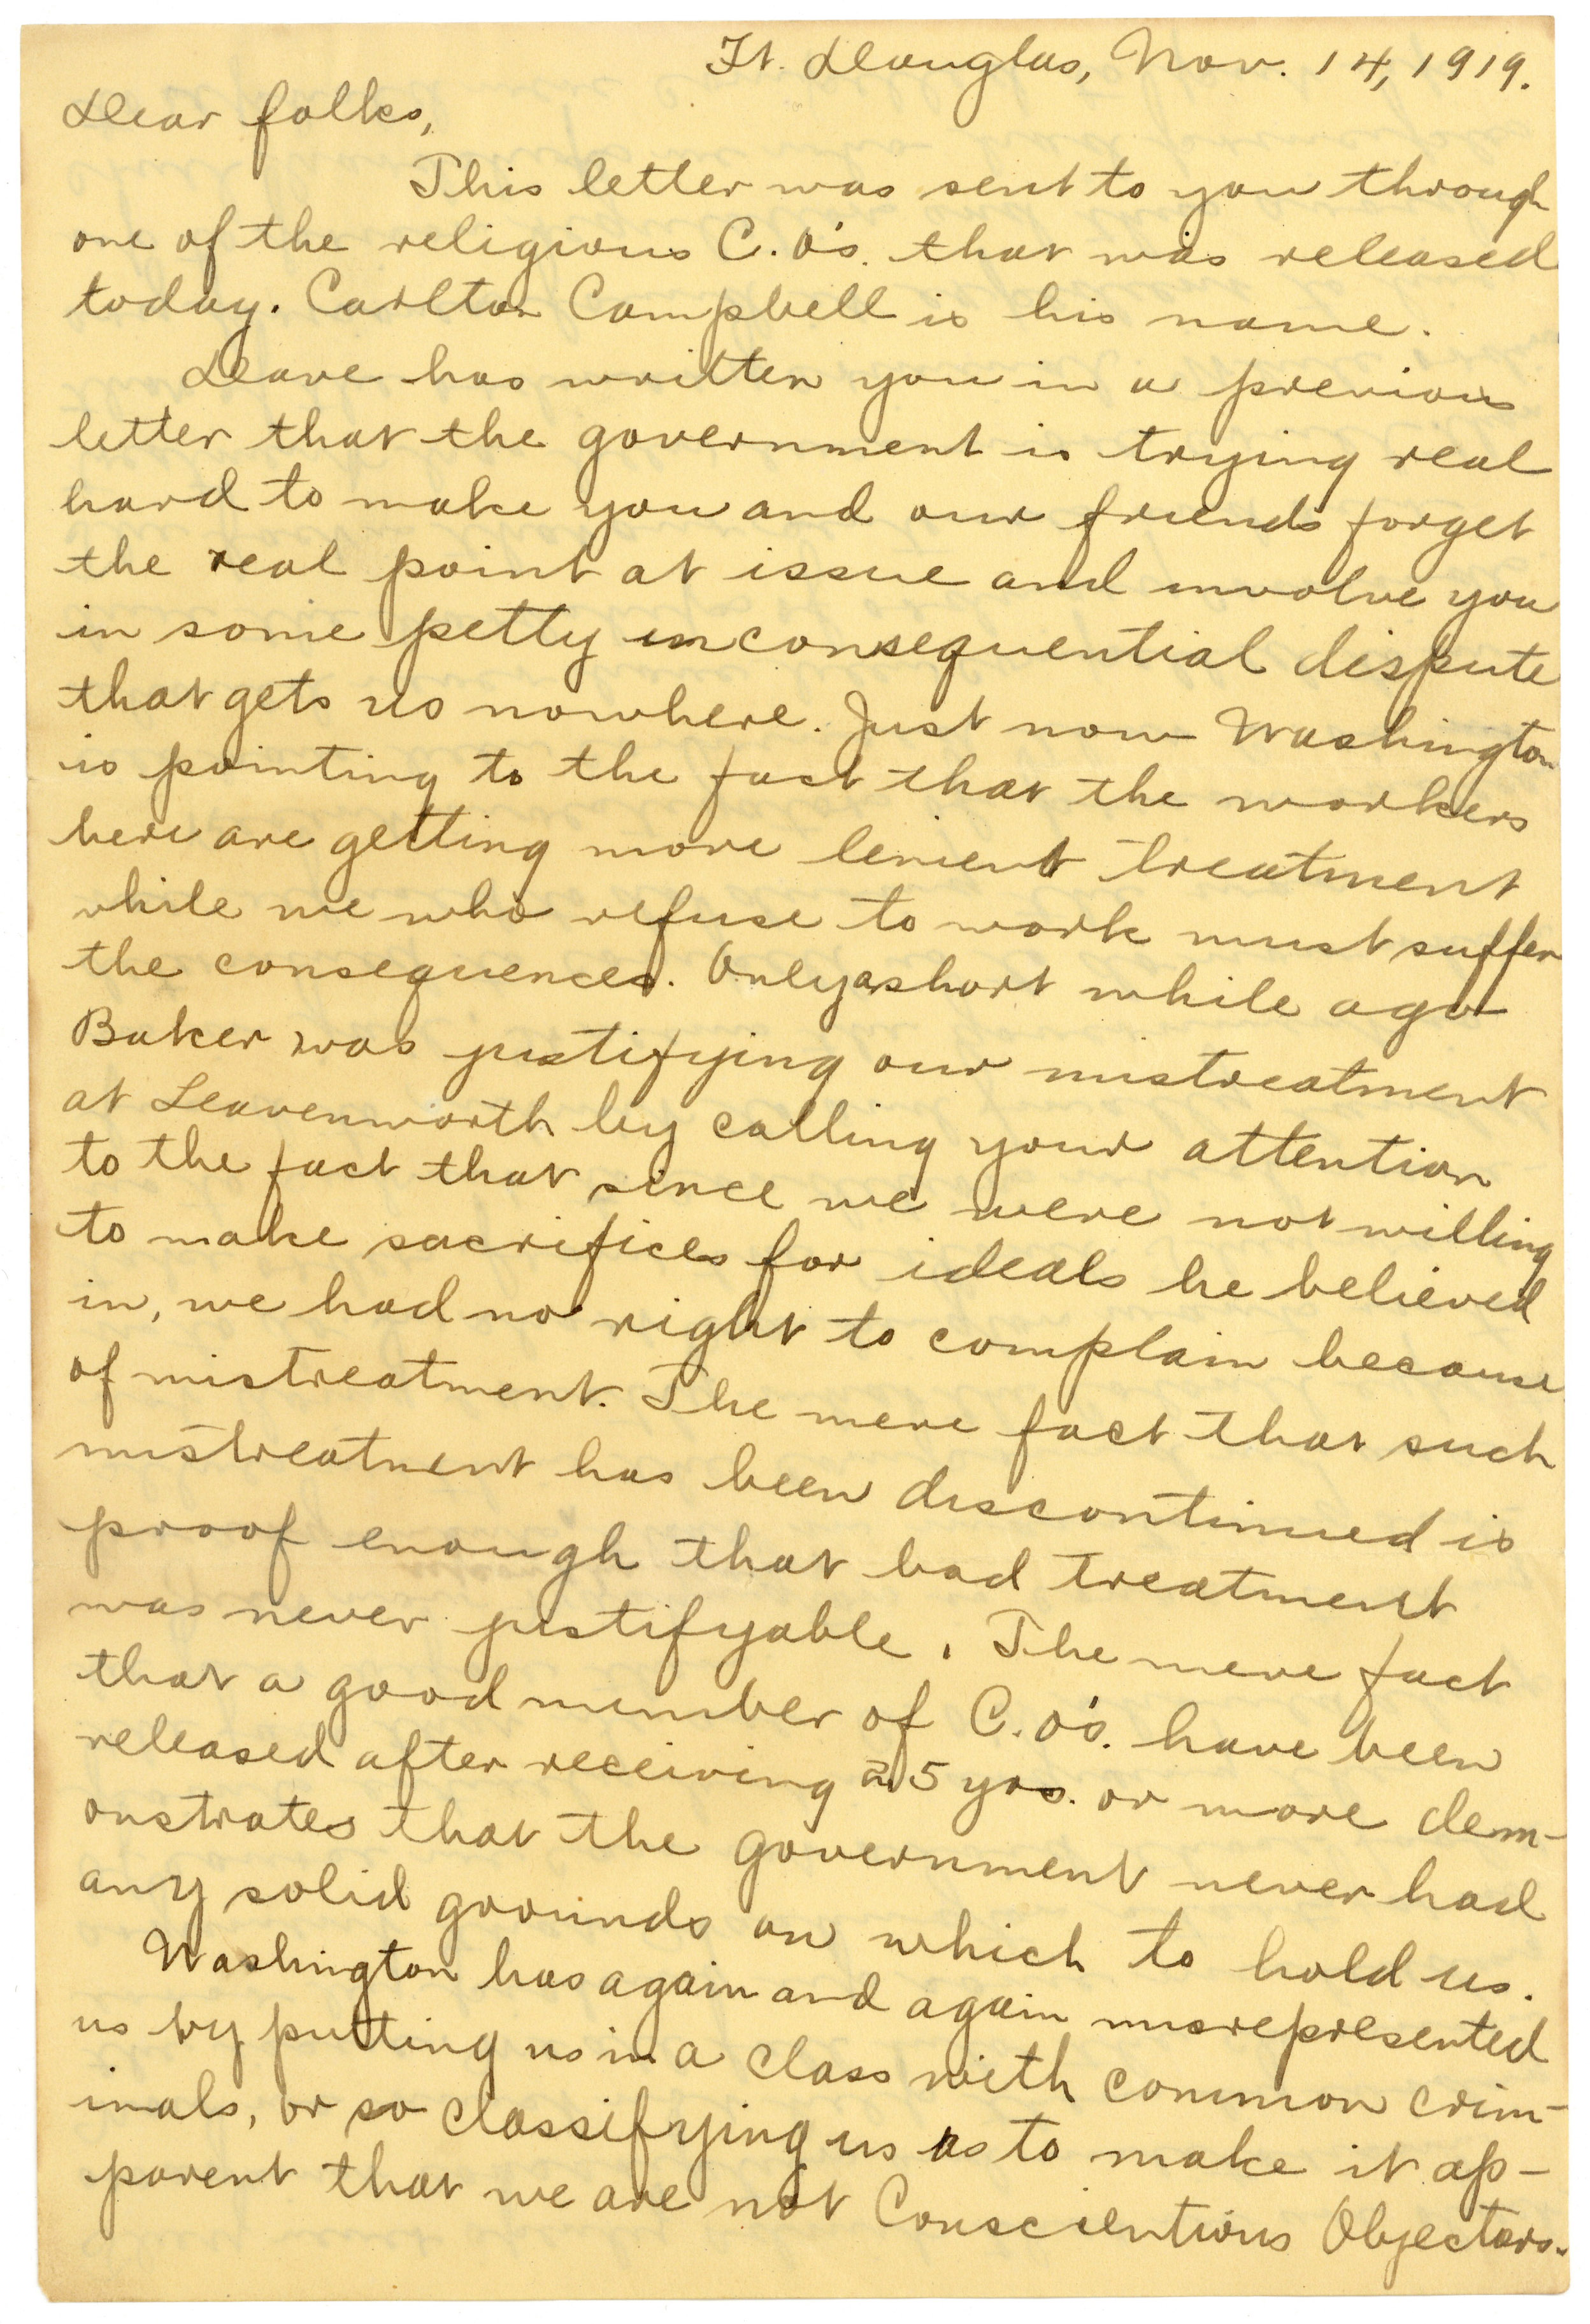 Ft. Douglas, Nov. 14, 1919.
Dear folks,
This letter was sent to you through
one of the religious C.O's. that was released
today. Carlton Campbell is his name.
Dave has written you in a previous
letter that the government is trying real
hard to make you and our friends forget
the real point at issue and involve you
in some petty inconsequential dispute
that gets us nowhere. Just now Washington
is pointing to the fact that the workers
here are getting more lenient treatment
while we who refuse to work must suffer
the consequences. Only a short while ago
Baker was justifying our mistreatment
at Leavenworth by calling your attention
to the fact that since we were not willing
to make sacrifices for ideals he believed
in, we had no right to complain because
of mistreatment. The mere fact that such
mistreatment has been discontinued is
proof enough that bad treatment
was never justifyable. The mere fact
that a good number of C.O's. have been
released after receiving 25 yrs. or more dem-
onstrates that the government never had
any solid grounds on which to hold us.
Washington has again and again misrepresented
us by putting us in a class with common crim-
inals, or so classifying us as to make it ap-
parent that we are not Conscientious Objectors.